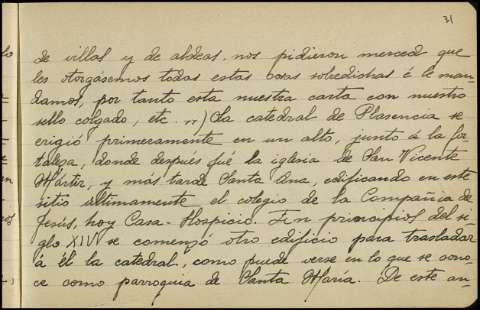 31
de villas y de aldeas. nos pidieron merced que
les otorgásemos todas estas cosas sobredichas é le man-
damos, por tanto esta nuestra carta con nuestro
sello colgado, etc "") La catedral de Plasencia se
erigió primeramente en un alto, junto á la for-
taleza, donde después fué la iglesia de San Vicente
Mártir, y más tarde Santa Ana, edificando en este
sitio ultimamente el colegio de la Compañia de
Jesús, hoy Casa-Hospicio. En principios del si-
glo XIV se comenzó otro edificio para trasladar
á él la catedral, como puede verse en lo que se cono-
ce como parroquia de Santa María. De este an-